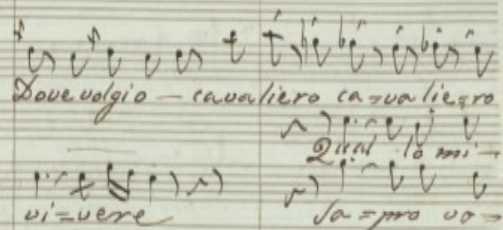 Dove volgio — cavaliero ca=valie=ro
Qual lo mi-
vi=vere Sa=pro vo=